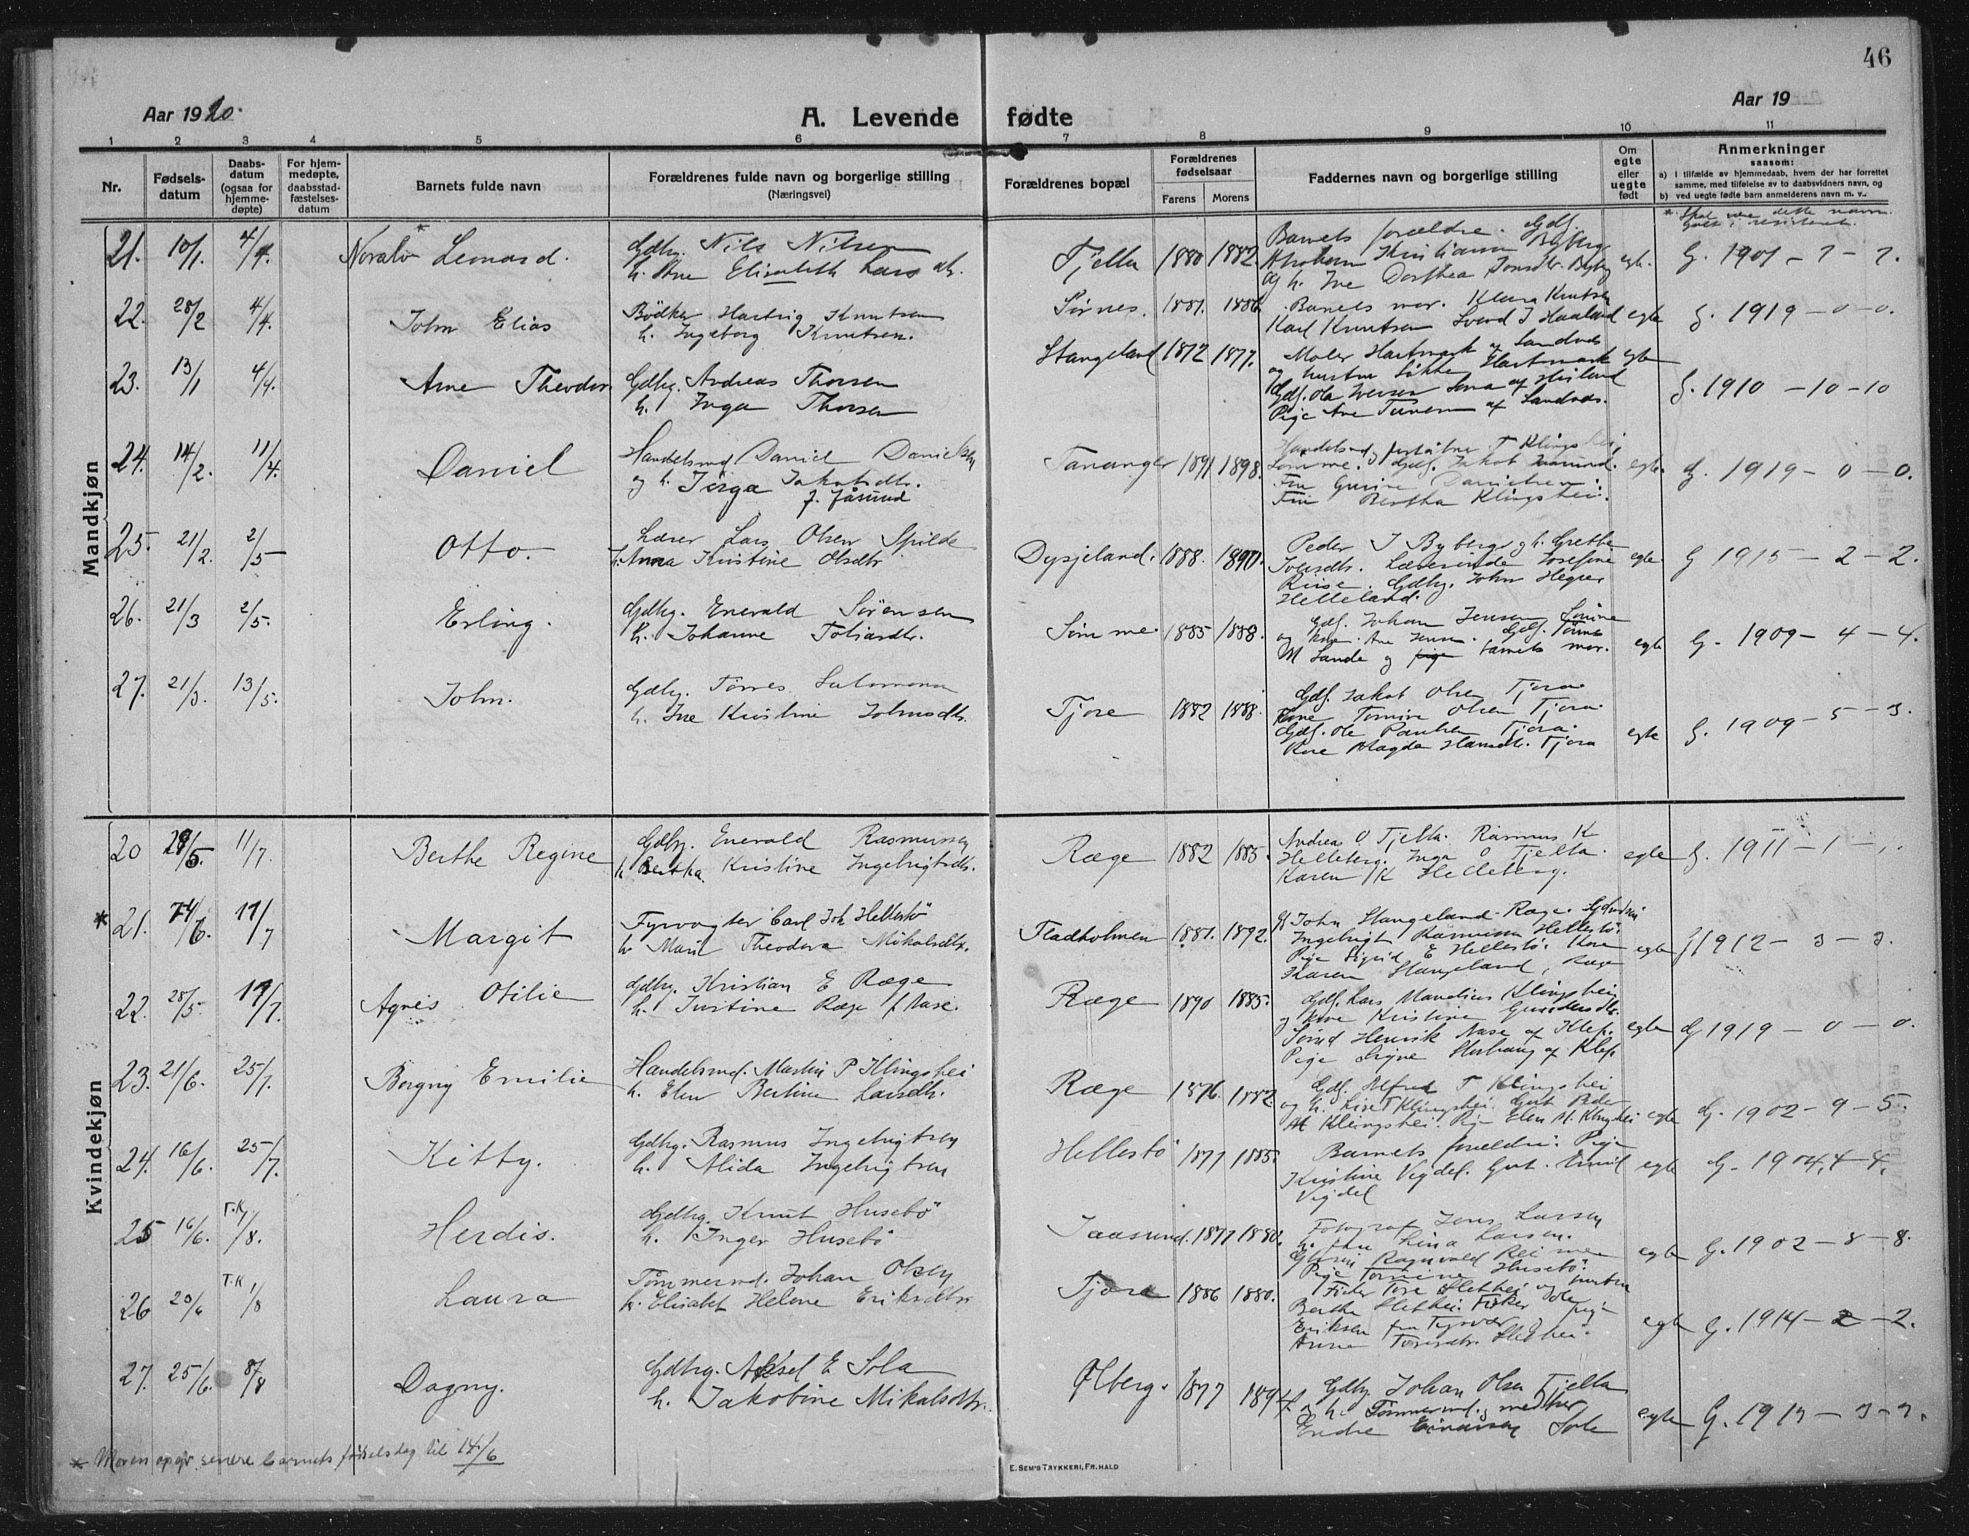 46
Aar 1920.
A. Levende fødte
Aar 19
1 2 3 4 5 6 7 8 9 10 11
Nr.
Fødsels-
datum
Daabs-
datum
(ogsaa for
hjemme-
døpte)
For hjem-
medøpte,
daabsstad-
fæstelses-
datum
Barnets fulde navn
Forældrenes fulde navn og borgerlige stilling
(Næringsvei)
Forældrenes bopæl
Forældrenes
fødselsaar
Farens Morens
Faddernes navn og borgerlige stilling
Om
egte
eller
uegte
født
Anmerkninger
saasom:
a) I tilfælde av hjemmedaab, hvem der har forrettet
samme, med tilføielse av to daabsvidners navn, og
b) ved uegte fødte barn anmelderens navn m. v.
Mandkjøn
21. 10/1. 4/4. Leonard. Gdbr. Nils Nilsen
h. Ane Elisabeth Lars dtr.
Tjelta 1880 1882.
Barnets forældre. Gdf.
Kristiansen Byberg
og h. Ine Dorthea Byberg
egte. G. 1907 - 7 - 7.
22. 28/2 4/4. John Elias Bödker Hartvig Knutsen
h. Ingeborg Knutsen.
Sörnes. 1881. 1886.
Barnets mor. Klara Knutsen
Karl Knutsen Svend J Haaland
egte G. 1919 - 0 - 0.
23. 13/1 4/4. Arne Theodor Gdbr. Andreas Thorsen
h. Inga Thorsen
Stangeland 1872 1877.
Maler Hartmark og Sandnes
og hustru Hartmark
Pige Ane af Sandnes.
egte G. 1910 - 10 - 10
24. 14/2. 11/4. Daniel Handelsmd. Daniel Danielsen
og h. Inga Jakobsdtr.
f. Jåsund
Tananger 1891. 1898.
T Klingshei,
Sömme. Gdf. Jakob Jaasund.
Fru Gurine Danielsen.
Fru Bertha Klingshei.
egte. G. 1919 - 0 - 0.
25. 21/2. 2/5 Otto. Lærer Lars Olsen Spilde
h. Anna Kristine Olsdtr
Dysjeland. 1888. 1890.
Peder J Byberg og h. Grethe
Lærerinde Josefine
Gdbr. John Hegre
Helleland.
egte. G 1915 - 2 - 2.
26. 21/3 2/5. Erling. Gdbr. Enevald Sörensen
h. Johanne Tobiasdtr.
Sömme 1885 1888.
Gdf. Johan Jensen Sömme
og kone. Ane Jensen. Gdf.
M Sande og barnets mor.
egte G. 1909 - 4 - 4.
27. 21/3. 13/5. John. Gdbr. Tönnes Salomonsen
h. Ine Kristine Johnsdtr.
Tjore 1882 1888.
Gdf. Jakob Olsen Tjora
Kone Tomine Olsen Tjora.
Gdf. Ole Paulsen Tjora.
Kone Magda Hansdtr. Tjora
egte G. 1909 - 5 - 3.
Kvindekjøn
20 28/5. 11/7. Berthe Regine Gdbr. Enevald Rasmussen
h. Bertha Kristine Ingebrigtsdtr.
Ræge 1882 1885.
Andrea O Tjelta. Rasmus K
Helleberg. Inga O Tjelta.
Karen K Helleberg.
egte G. 1911 - 1 - 1.
* 21. 14/6. 11/7 Margit Fyrvogter Carl Joh Hellestö
h. Marie Theodora Mikalsdtr.
Fladholmen 1881. 1892.
John Stangeland. Ræge.
Ingebrigt Rasmussen Hellestö.
Pige Sigrid E Hellestö. Kone
Karen Stangeland, Ræge
egte G 1912 - 3 - 3.
22. 28/5. 11/7. Agnes Otilie Gdbr. Kristian E Ræge
h. Justine Ræge f. Nase.
Ræge 1890 1885.
Gdf. Lars Mandius Klingshei
og kone Kristine Gundersdtr.
Henrik Nase af Klep.
Pige Signe af Klep
egte G 1919 - 0 - 0.
23. 21/6. 25/7. Borgny Emilie Handelsmd. Martin P Klingshei
h. Elen Bertine Larsdtr.
Ræge 1876. 1882
Gdf. Alfred T Klingshei
og h. Lise T Klingshei. Gut Peder
M Klingshei. Pige Elen M. Klingshei
egte G. 1902 - 9 - 5.
24. 16/6. 25/7. Kitty. Gdbr. Rasmus Ingebrigtsen
h. Alida Ingebrigtsen
Hellestö 1877 1885.
Barnets forældre. Pige
Kristine Vigdel. Gut. Emil
Vigdel
egte G. 1904. 4 - 4.
25 16/6. T.K. 1/8. Herdis. Gdbr. Knut Husebö
h. Inger Husebö
Jaasund. 1877 1880.
Fotograf Jens Larsen
h. fru Lina Larsen.
Ragnvald Reimen
Pige Tomine Husebö.
egte G. 1902 - 8 - 8.
26 20/6 T.K 1/8 Laura Tömmermd. Johan Olsen
h. Elisabet Helene Eriksdtr
Tjora 1886 1880.
Fisker Tore Slethei og hustru
Berthe Slethei. Fisker Ole
Eriksen fra Tysvær pige
Anna Toresdtr. Slethei.
egte G. 1914 - 2 - 2.
27. 25/6. 8/8 Dagny. Gdbr. Aksel E Sola
h. Jakobine Mikalsdtr.
Ølberg. 1877 1891
Gdbr. Johan Olsen Tjelta
og h. Tömmermd.
Endre Einarsen Sola
egte G. 1913 - 3 - 3.
* Moren opgir senere barnets fødselsdag til 14/6
E. SEM'S TRYKKERI, FR.HALD